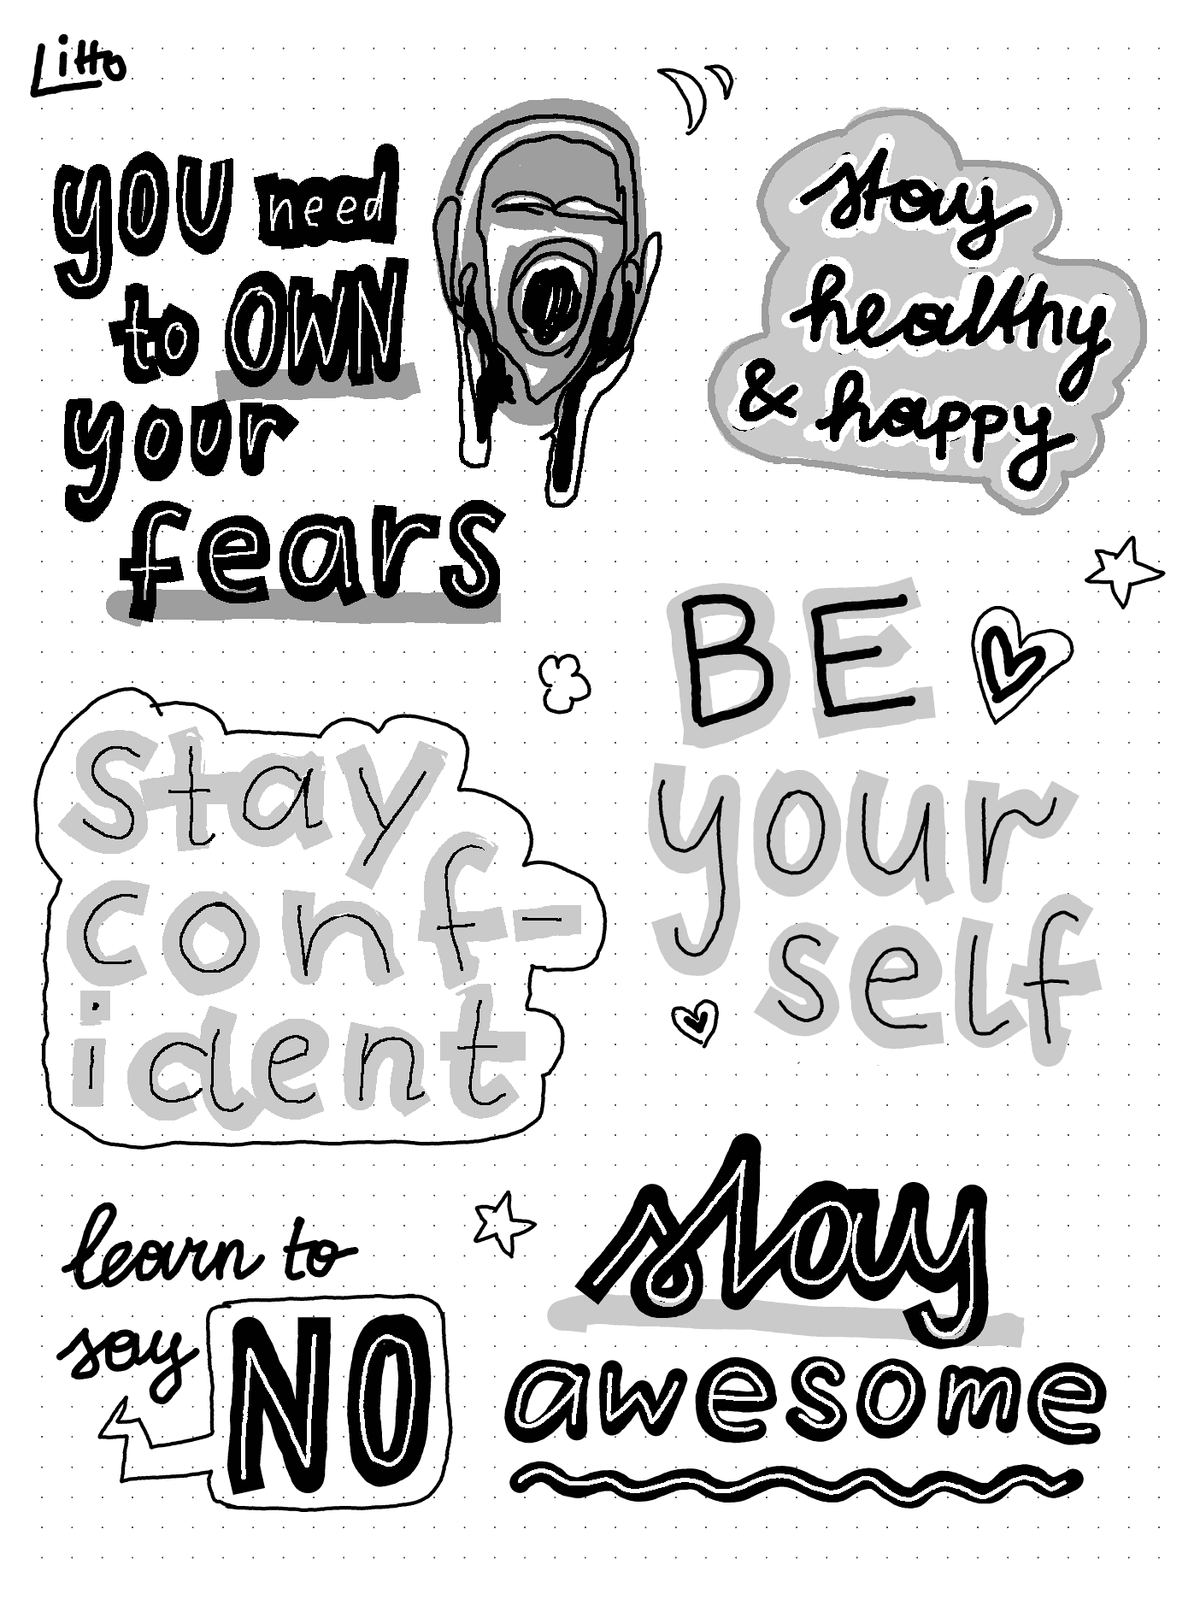 Litto
you need
to OWN
your
fears
stay
healthy
& happy
BE
your
self
Stay
conf-
ident
learn to
say NO
stay
awesome